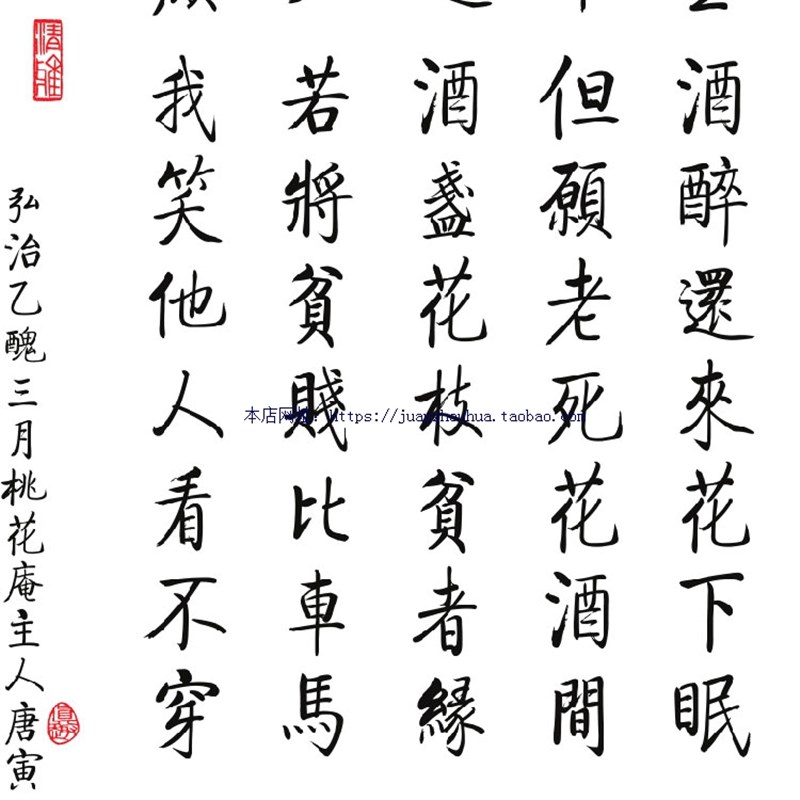 酒醉還來花下眠
但願老死花酒間
酒盞花枝貧者緣
若將貧賤比車馬
我笑他人看不穿
清雅
弘治乙醜三月桃花庵主人唐寅
本店网址：https://juanzhouhua.taobao.com